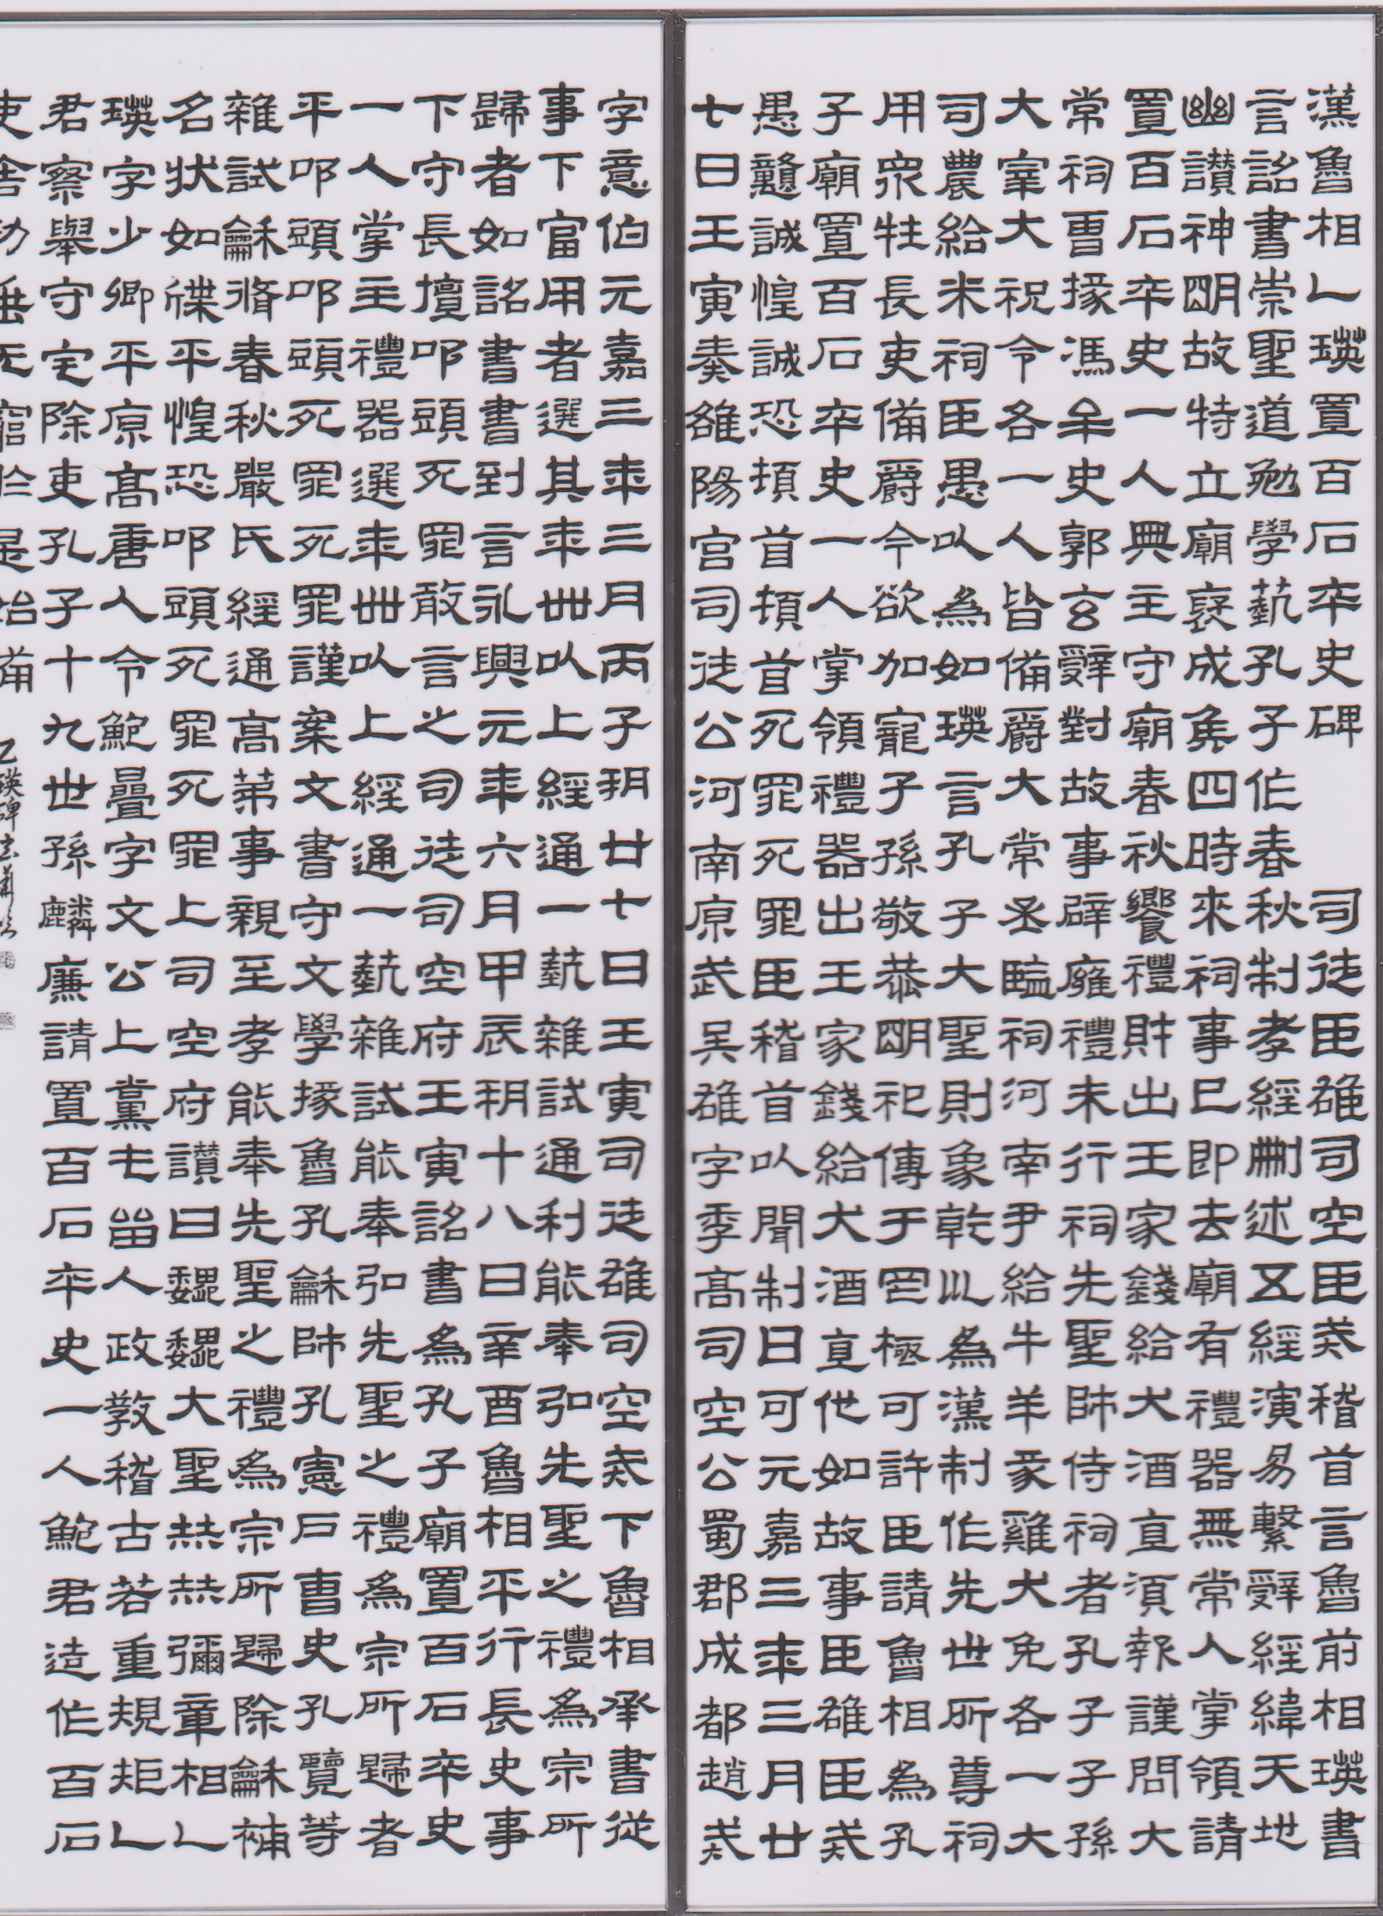 漢魯相乙瑛置百石卒史碑　司徒臣雄司空臣戒稽首言魯前相瑛書
言詔書崇聖道勉學藝孔子作春秋制孝經刪述五經演易繫辭經緯天地
幽讚神明故特立廟裦成矦四時來祠事已即去廟有禮器無常人掌領請
置百石卒史一人典主守廟春秋饗禮財出王家錢給犬酒直須報謹問大
常祠曹掾馮牟史郭玄辭對故事辟廱禮未行祠先聖師侍祠者孔子子孫
大宰大祝令各一人皆備爵大常丞監祠河南尹給牛羊豕雞犬免各一大
司農給米祠臣愚以為如瑛言孔子大聖則象乾㠯為漢制作先世所尊祠
用眾牲長吏備爵今欲加寵子孫敬恭明祀傳于罔極可許臣請魯相為孔
子廟置百石卒史一人掌領禮器出王家錢給犬酒直他如故事臣雄臣戒
愚戇誠惶誠恐頓首頓首死罪死罪臣稽首以聞制曰可元嘉三年三月廿
七日壬寅奏雒陽宮司徒公河南原武吳雄字季高司空公蜀郡成都趙戒
字意伯元嘉三年三月丙子朔廿七日壬寅司徒雄司空戒下魯相承書從
事下當用者選其年卌以上經通一藝雜試通利能奉弘先聖之禮為宗所
歸者如詔書書到言永興元年六月甲辰朔十八日辛酉魯相平行長史事
下守長擅叩頭死罪敢言之司徒司空府壬寅詔書為孔子廟置百石卒史
一人掌主禮器選年卌以上經通一藝雜試能奉弘先聖之禮為宗所歸者
平叩頭叩頭死罪死罪謹案文書守文學掾魯孔龢師孔憲戶曹史孔覽等
雜試龢脩春秋嚴氏經通高第事親至孝能奉先聖之禮為宗所歸除龢補
名狀如牒平惶恐叩頭死罪死罪上司空府讚曰巍巍大聖赫赫彌章相乙
瑛字少卿平原高唐人令鮑疊字文公上黨屯留人政教稽古若重規矩乙
君察舉守宅除吏孔子十九世孫麟廉請置百石卒史一人鮑君造作百石
吏舍功垂无窮於是始𤰇
乙瑛碑